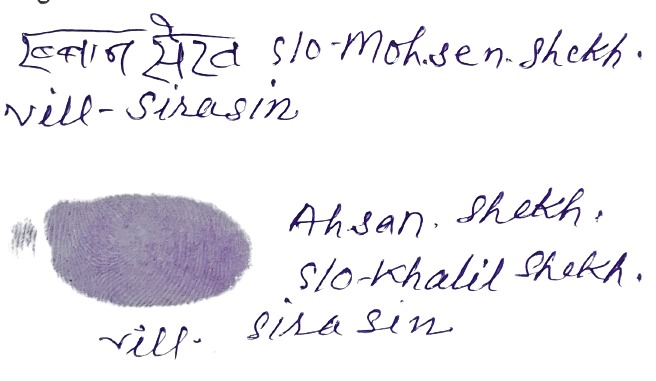 सेख s/o-Mohsen. Shekh.
vill-Sirasin
Ahsan. Shekh.
s/o-Khalil Shekh.
vill. Sirasin